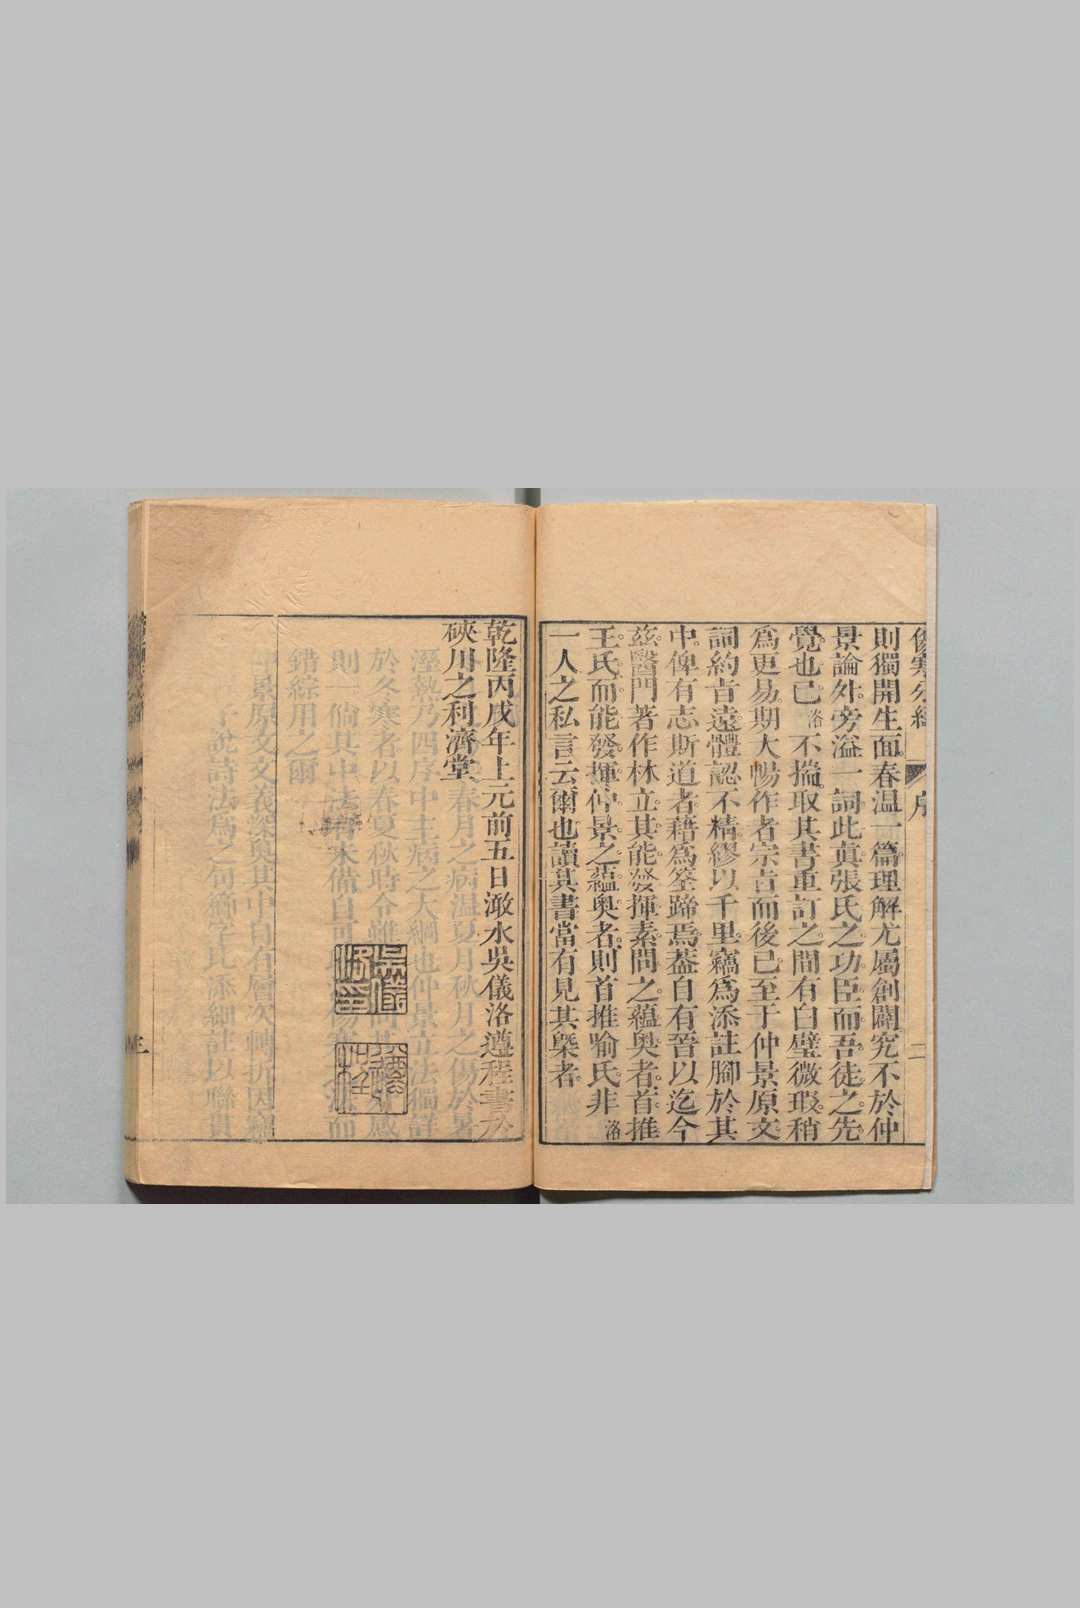 傷寒分經
序
二
則獨開生面。春温一篇。理解尤屬創闢。究不於仲
景論外。旁溢一詞。此真張氏之功臣。而吾徒之先
覺也已。洛不揣取其書重訂之。間有白璧微瑕。稍
為更易。期大暢作者宗旨而後已。至于仲景原文。
詞約旨遠。體認不精。繆以千里。竊為添註腳於其
中。俾有志斯道者藉為筌蹄焉。蓋自有晉以迄今
茲。醫門著作林立。其能發揮素問之蘊奧者。首推
王氏。而能發揮仲景之蘊奧者。則首推喻氏。非洛
一人之私言云爾也。讀其書當有見其槩者。
乾隆丙戌年上元前五日澉水吳儀洛遵程書於
硤川之利濟堂
吳儀
洛印